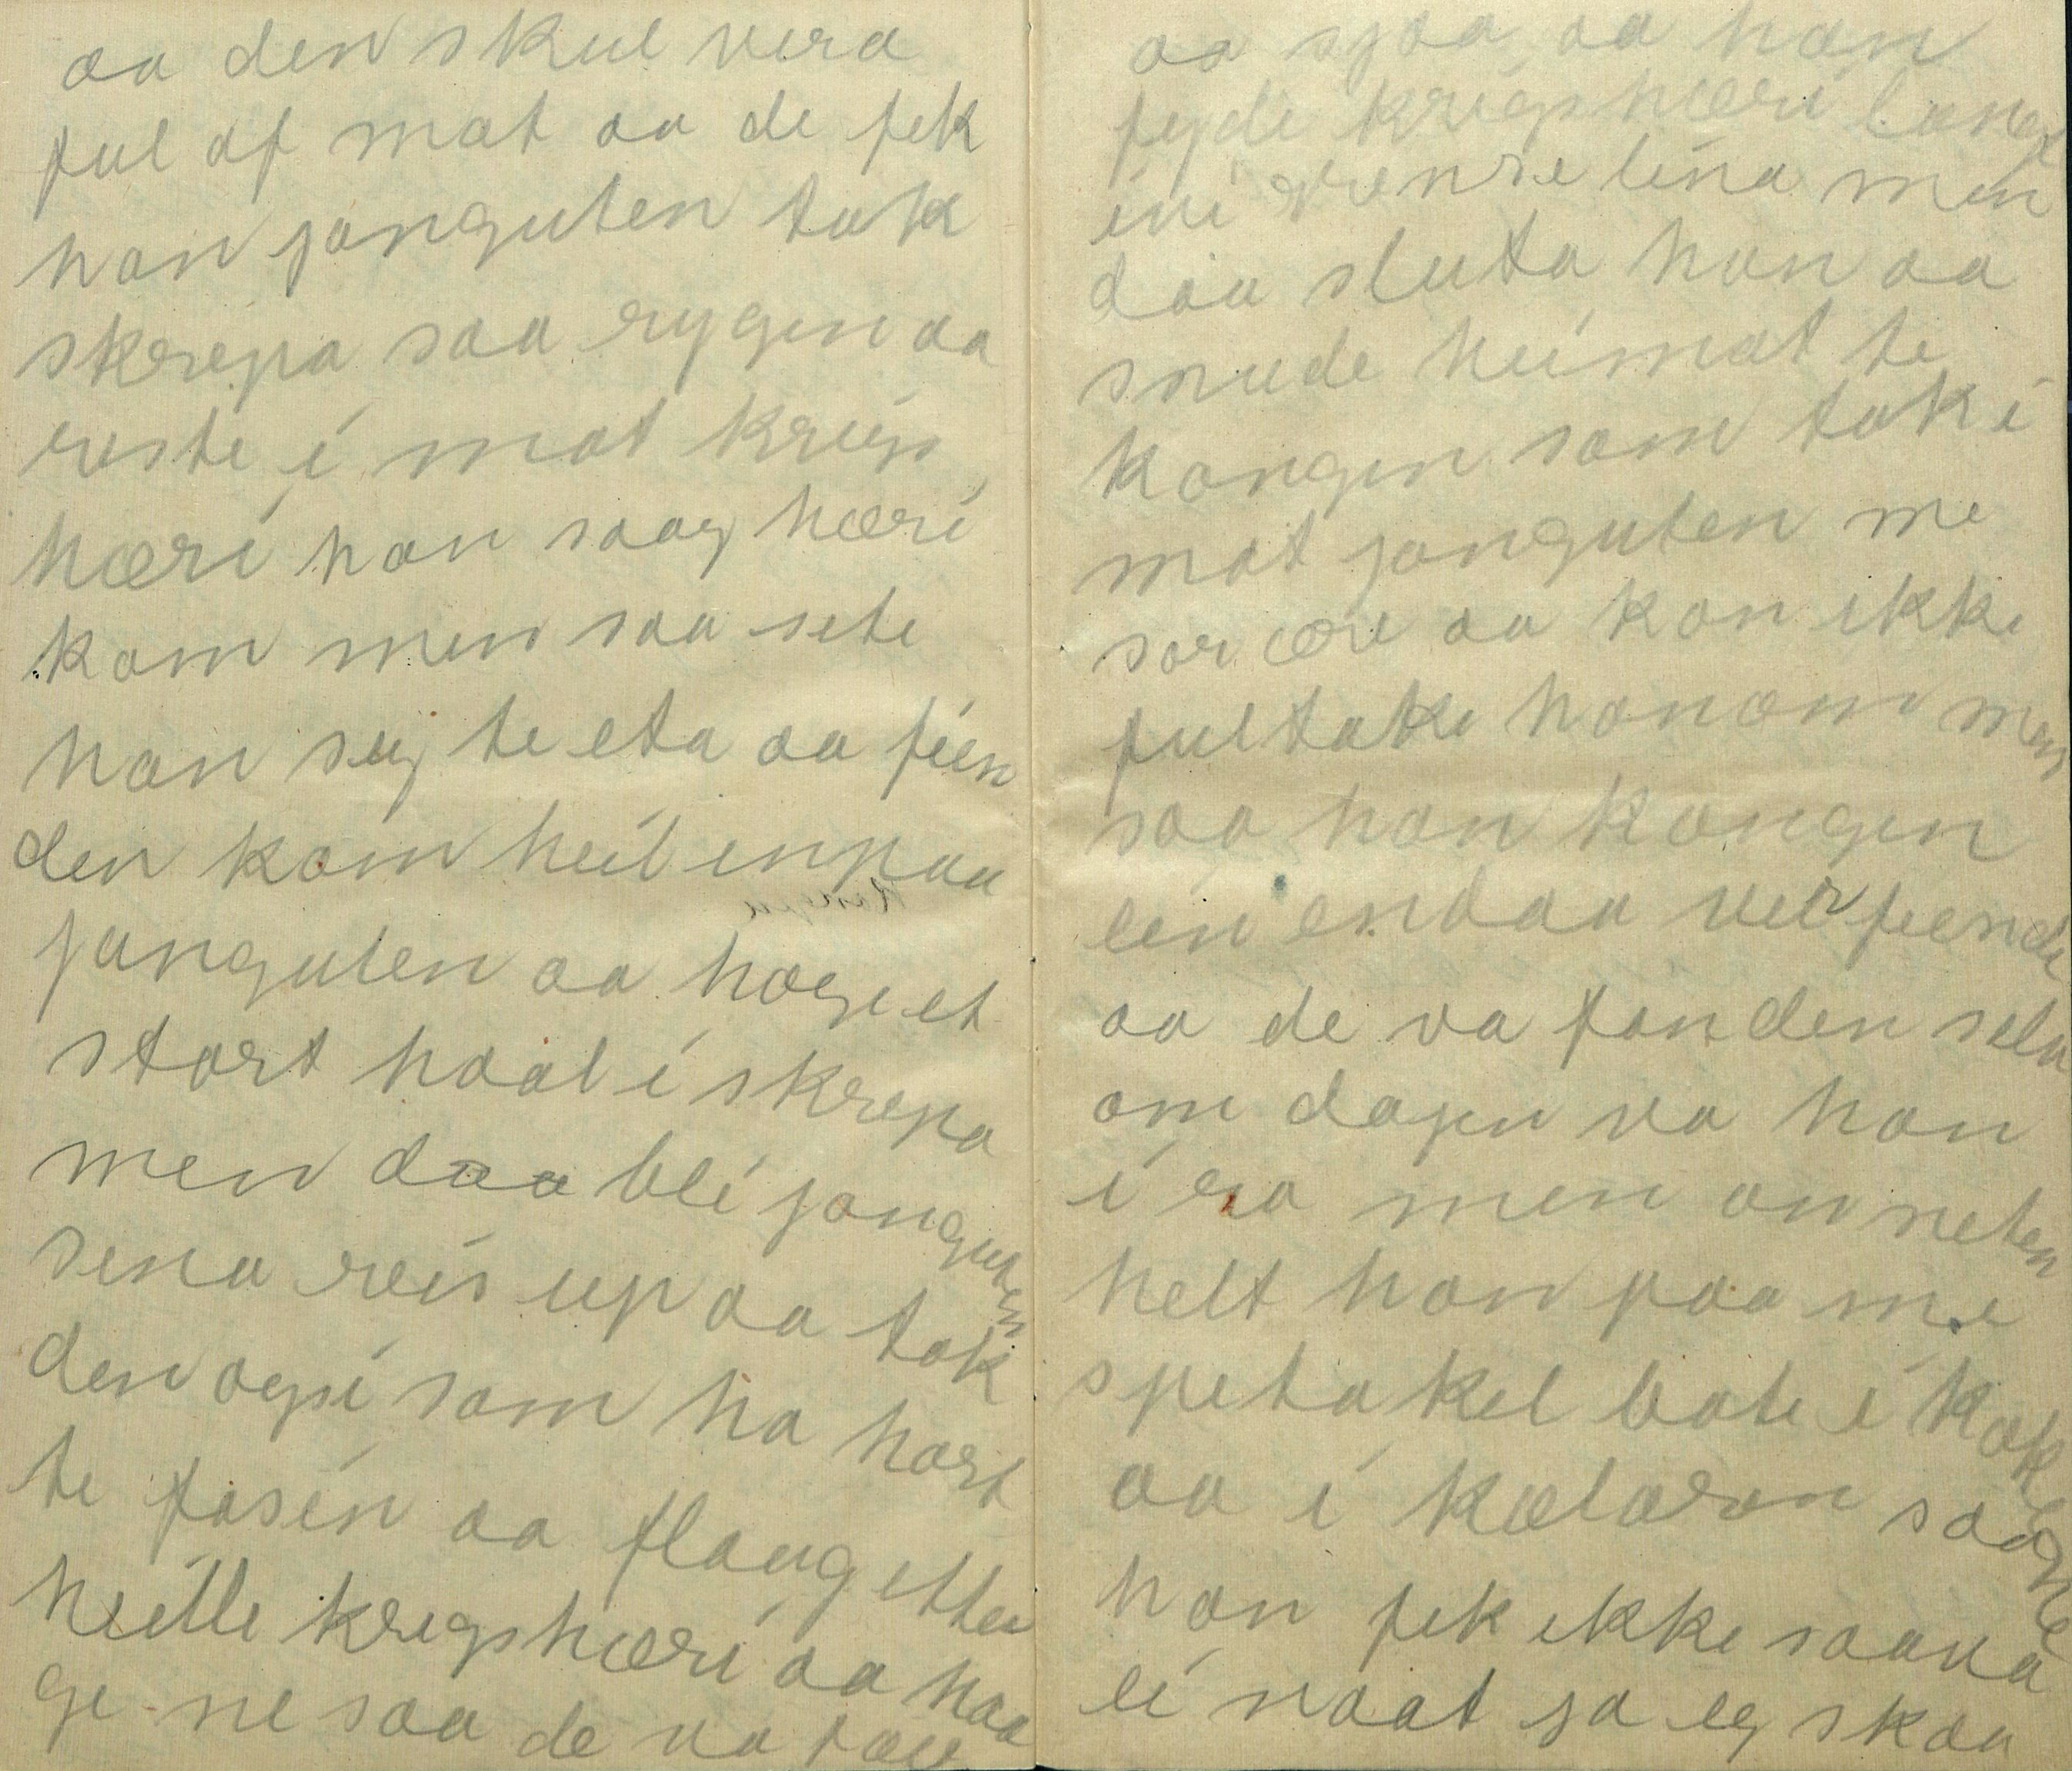 aa den skul vera
ful af mat aa de fek
han janguten tok
skrepa saa rygen aa
reste i mot kriigs
hæri han saag hæri
kom men saa sete
han seg te eta aa fien
den kom heil inpaa
janguten aa høge et
stort haal i skrepa
men daa blei janguten
sena reis up aa tok
den ogsi som ha hort
te fosen aa flaug etter
heille krigshæri aa haa
ge ne saa de va
aa sjaa aa han
fygde krigshæri langt
ini grense lina men
daa sluta han aa
snude heimat te
kongen som tok i
mot janguten me
stor ære aa kon ikke
fultakke honom men
saa han kongen
ein endaa ver fiende
aa de va fanden selv
om dagen va han
i ro men on neten
helt han paa me
spetakel bote i kok
aa i kælaren saa ne
han fek ikke saava
ei naat ja eg skaa